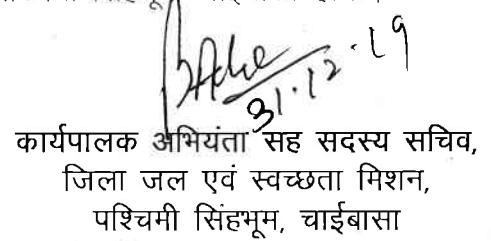 31.12.19
कार्यपालक अभियंता सह सदस्य सचिव,
जिला जल एवं स्वच्छता मिशन,
पश्चिमी सिंहभूम, चाईबासा